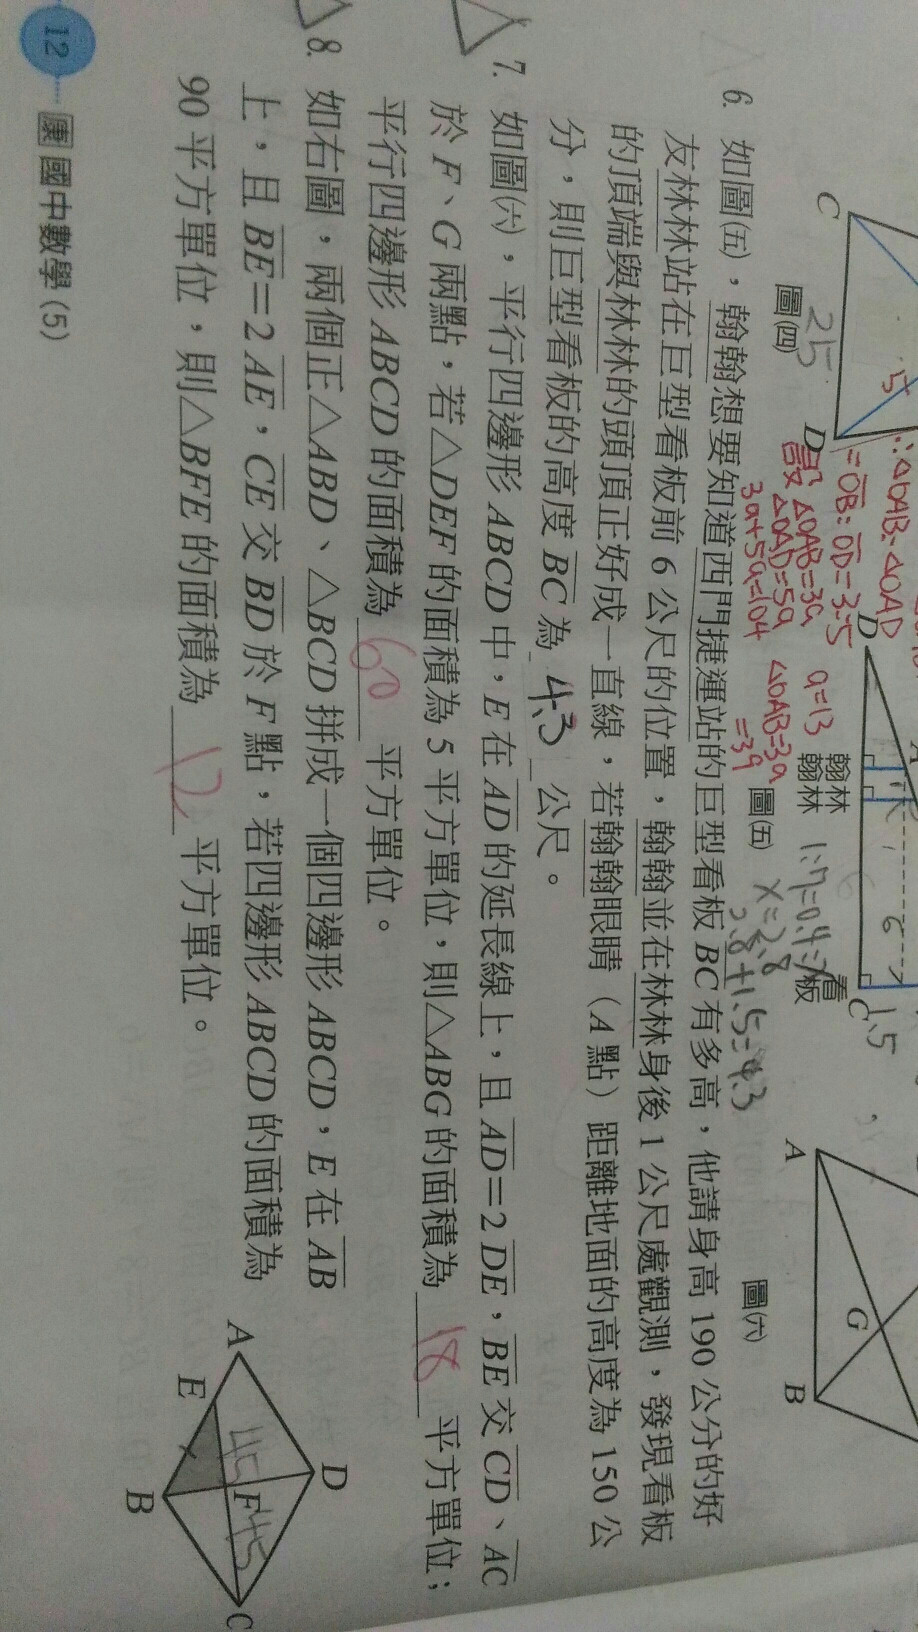 C
圖㈣
25
15
D
∴△OAB:△OAD
=OB:OD=3:5
設△OAB=3a
△OAD=5a
3a+5a=104
a=13
△OAB=3a
=39
D
A
1
6
翰翰
林林
看板
C
1.5
圖㈤
1:7=0.4:x
x=2.8
2.8+1.5=4.3
A
B
G
圖㈥
6. 如圖㈤，翰翰想要知道西門捷運站的巨型看板 BC 有多高，他請身高 190 公分的好
友林林站在巨型看板前 6 公尺的位置，翰翰並在林林身後 1 公尺處觀測，發現看板
的頂端與林林的頭頂正好成一直線，若翰翰眼睛（A 點）距離地面的高度為 150 公
分，則巨型看板的高度 BC 為 4.3 公尺。
7. 如圖㈥，平行四邊形 ABCD 中，E 在 AD 的延長線上，且 AD＝2 DE，BE 交 CD、AC
於 F、G 兩點，若△DEF 的面積為 5 平方單位，則△ABG 的面積為 18 平方單位；
平行四邊形 ABCD 的面積為 60 平方單位。
8. 如右圖，兩個正△ABD、△BCD 拼成一個四邊形 ABCD，E 在 AB
上，且 BE＝2 AE，CE 交 BD 於 F 點，若四邊形 ABCD 的面積為
90 平方單位，則△BFE 的面積為 12 平方單位。
A
D
E
45
F
45
B
C
12
康 國中數學(5)